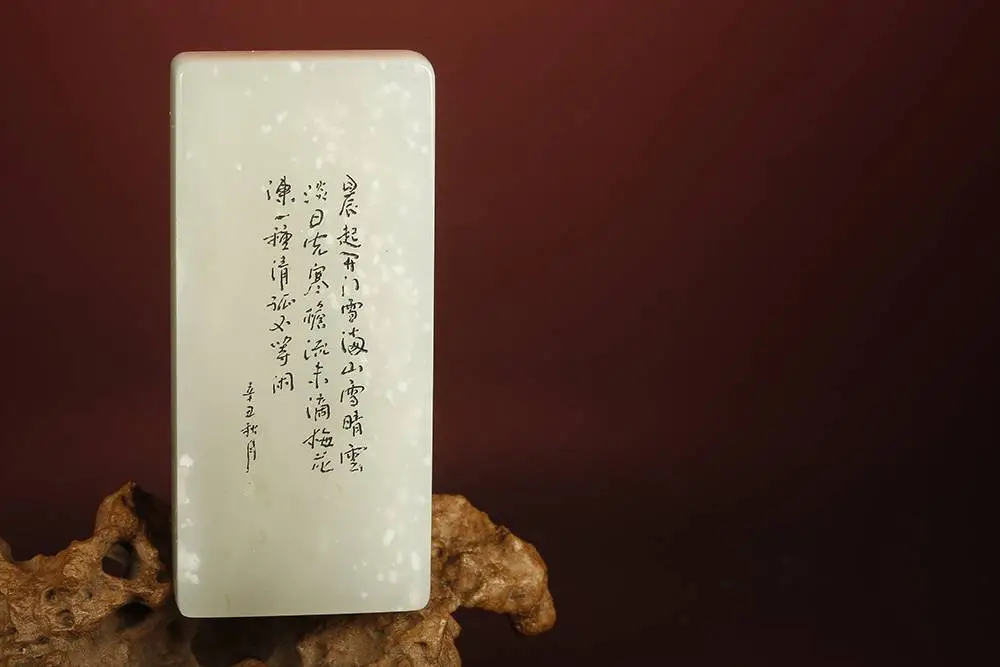 晨起开门雪满山雪晴雲
淡日光寒檐流未滴梅花
凍一種清孤不等闲
辛丑秋月